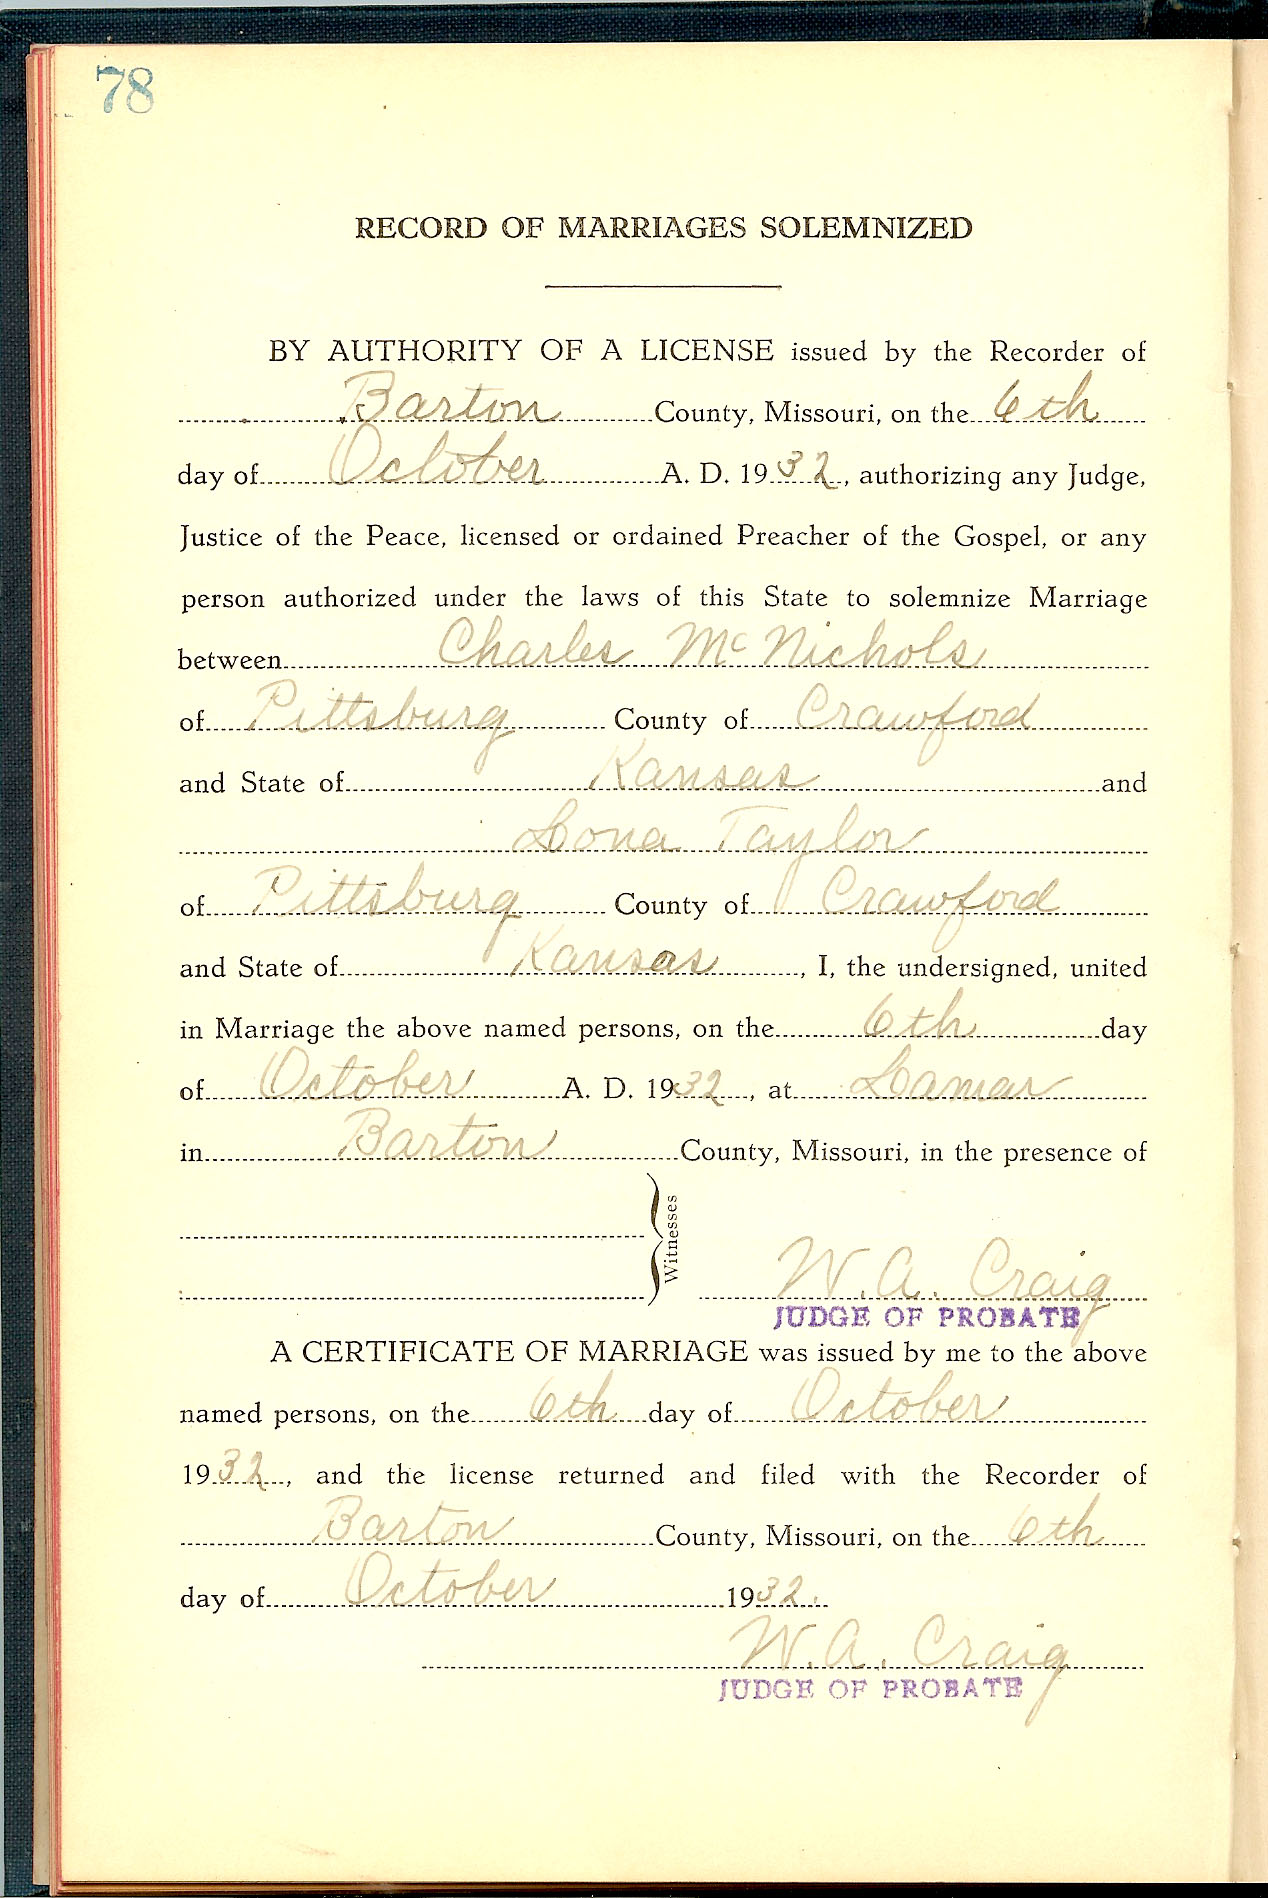 78
RECORD OF MARRIAGES SOLEMNIZED
BY AUTHORITY OF A LICENSE issued by the Recorder of
Barton County, Missouri, on the 6th
day of October A. D. 1932, authorizing any Judge,
Justice of the Peace, licensed or ordained Preacher of the Gospel, or any
person authorized under the laws of this State to solemnize Marriage
between Charles McNichols
of Pittsburg County of Crawford
and State of Kansas and
Lona Taylor
of Pittsburg County of Crawford
and State of Kansas, I, the undersigned, united
in Marriage the above named persons, on the 6th day
of October A. D. 1932, at Lamar
in Barton County, Missouri, in the presence of
Witnesses
W. A. Craig
JUDGE OF PROBATE
A CERTIFICATE OF MARRIAGE was issued by me to the above
named persons, on the 6th day of October
1932, and the license returned and filed with the Recorder of
Barton County, Missouri, on the 6th
day of October 1932.
W. A. Craig
JUDGE OF PROBATE